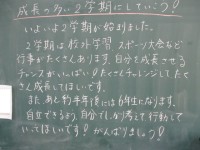 成長の多い2学期にしていこう!
いよいよ2学期が始まりました。
2学期は校外学習、スポーツ大会など
行事がたくさんあります。自分を成長させる
チャンスがいっぱい!たくさんチャレンジしてたく
さん成長してほしいです。
また、あと約半年後には6年生になります。
自立できるよう、自分でしっかり考えて行動して
いってほしいです!がんばりましょう!